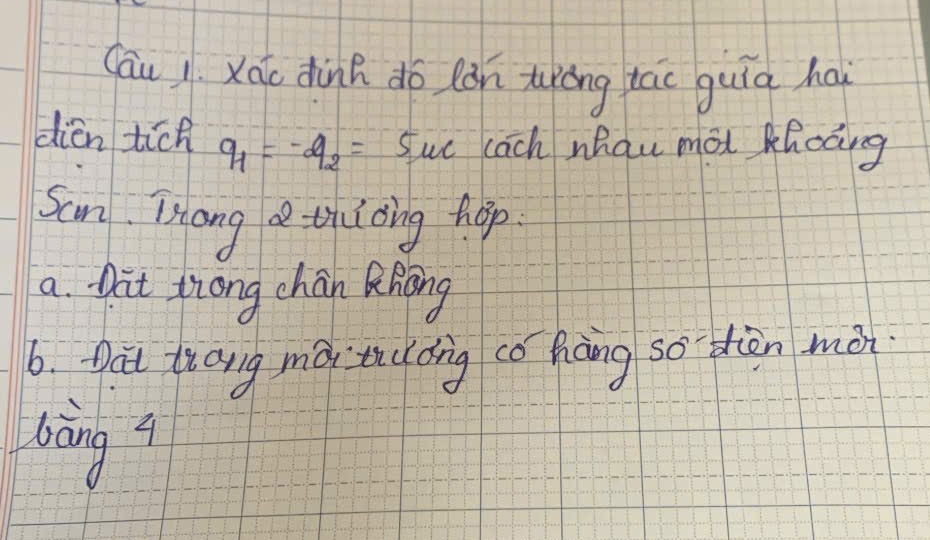 Câu 1. Xác định độ lớn tương tác giữa hai
điện tích q₁ = -q₂ = 5μc cách nhau một khoảng
5cm. Trong 2 trường hợp:
a. Đặt trong chân không
b. Đặt trong môi trường có hằng số điện môi
bằng 4